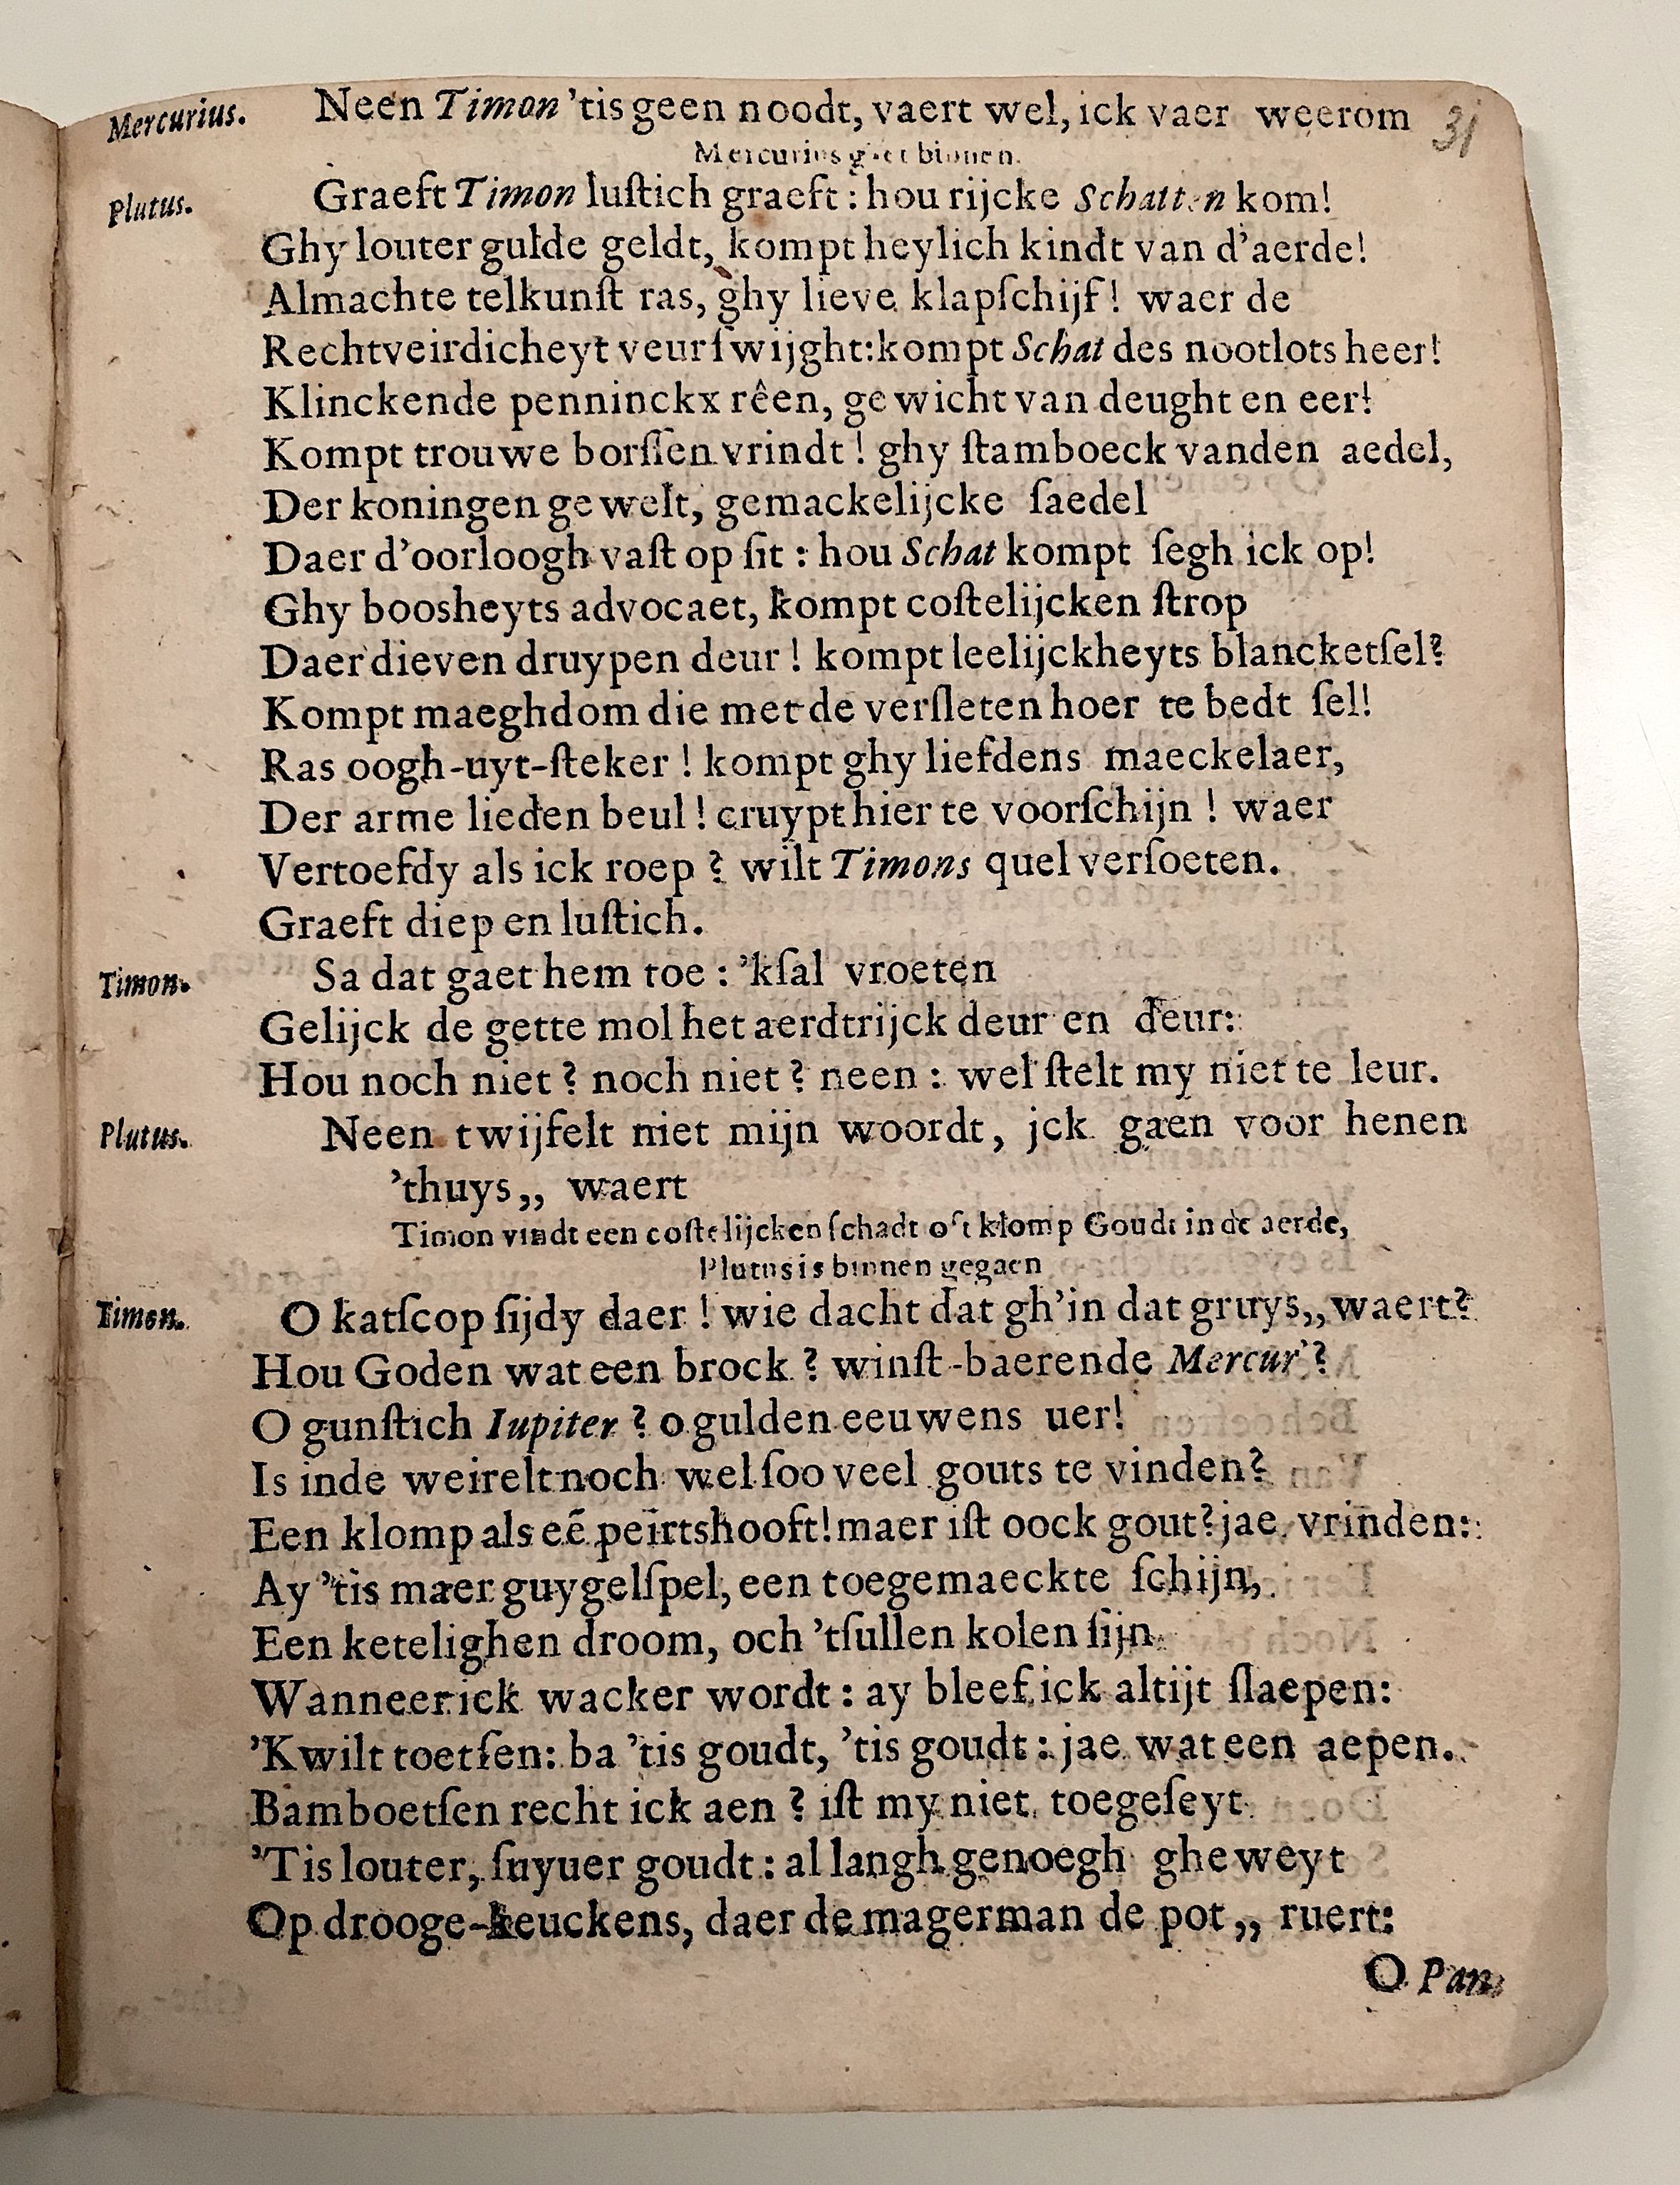 31
Mercurius. Neen Timon 'tis geen noodt, vaert wel, ick vaer weerom
Mercurius giet binnen.
Plutus. Graeft Timon luſtich graeft : hou rijcke Schatten kom!
Ghy louter gulde geldt, kompt heylich kindt van d'aerde!
Almachte telkunſt ras, ghy lieve klapſchijf! waer de
Rechtveirdicheyt veur ſwijght: kompt Schat des nootlots heer!
Klinckende penninckx rêen, gewicht van deught en eer!
Kompt trouwe borſſen vrindt! ghy ſtamboeck vanden aedel,
Der koningen gewelt, gemackelijcke ſaedel
Daer d'oorloogh vaſt op ſit : hou Schat kompt ſegh ick op!
Ghy boosheyts advocaet, kompt coſtelijcken ſtrop
Daer dieven druypen deur! kompt leelijckheyts blancketſel?
Kompt maeghdom die met de verſleten hoer te bedt ſel!
Ras oogh-uyt-ſteker! kompt ghy liefdens maeckelaer,
Der arme lieden beul! cruypt hier te voorſchijn! waer
Vertoefdy als ick roep? wilt Timons quel verſoeten.
Graeft diep en luſtich.
Timon. Sa dat gaet hem toe : 'kſal vroeten
Gelijck de gette mol het aerdtrijck deur en deur:
Hou noch niet? noch niet? neen : wel ſtelt my niet te leur.
Plutus. Neen twijfelt niet mijn woordt, jck gaen voor henen
'thuys,, waert
Timon vindt een coſtelijcken ſchadt oft klomp Goudt in de aerde,
Plutus is binnen gegaen
Timon. O katſcop ſijdy daer! wie dacht dat gh'in dat gruys,, waert?
Hou Goden wat een brock? winſt-baerende Mercur'?
O gunſtich Iupiter? o gulden eeuwens uer!
Is inde weirelt noch wel ſoo veel gouts te vinden?
Een klomp als eē peirtshooft! maer iſt oock gout? jae vrinden:
Ay 'tis maer guygelſpel, een toegemaeckte ſchijn,
Een ketelighen droom, och 'tſullen kolen ſijn
Wanneer ick wacker wordt : ay bleef ick altijt ſlaepen:
'Kwilt toetſen: ba 'tis goudt, 'tis goudt : jae wat een aepen.
Bamboetſen recht ick aen? iſt my niet toegeſeyt
'Tis louter, ſuyuer goudt : al langh genoegh gheweyt
Op drooge-keuckens, daer de magerman de pot,, ruert:
O Pan